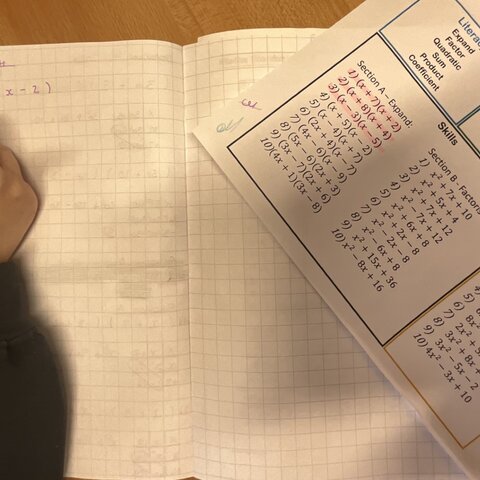 x - 2)
Literac
Expand
Factor
Quadratic
Sum
Product
Coefficient
Skills
Section A – Expand:
1) (x + 7)(x + 2)
2) (x + 8)(x + 4)
3) (x – 3)(x – 5)
4) (x + 5)(x – 2)
5) (x – 4)(x + 7)
6) (2x + 4)(x – 9)
7) (4x – 6)(x – 7)
8) (5x – 6)(2x + 3)
9) (3x – 7)(2x + 6)
10)(4x + 1)(3x – 8)
Section B - Factoris
1) x² + 7x + 10
2) x² + 5x + 4
3) x² + 7x + 12
4) x² + 6x + 8
5) x² + 2x – 8
6) x² – 2x – 8
7) x² – 6x + 8
8) x² + 15x + 36
10) x² – 8x + 16
4)
5)
6) 8x²
7) 2x² +
8) 3x² + 8x +
9) 3x² – 5x – 2
10)4x² – 3x + 10